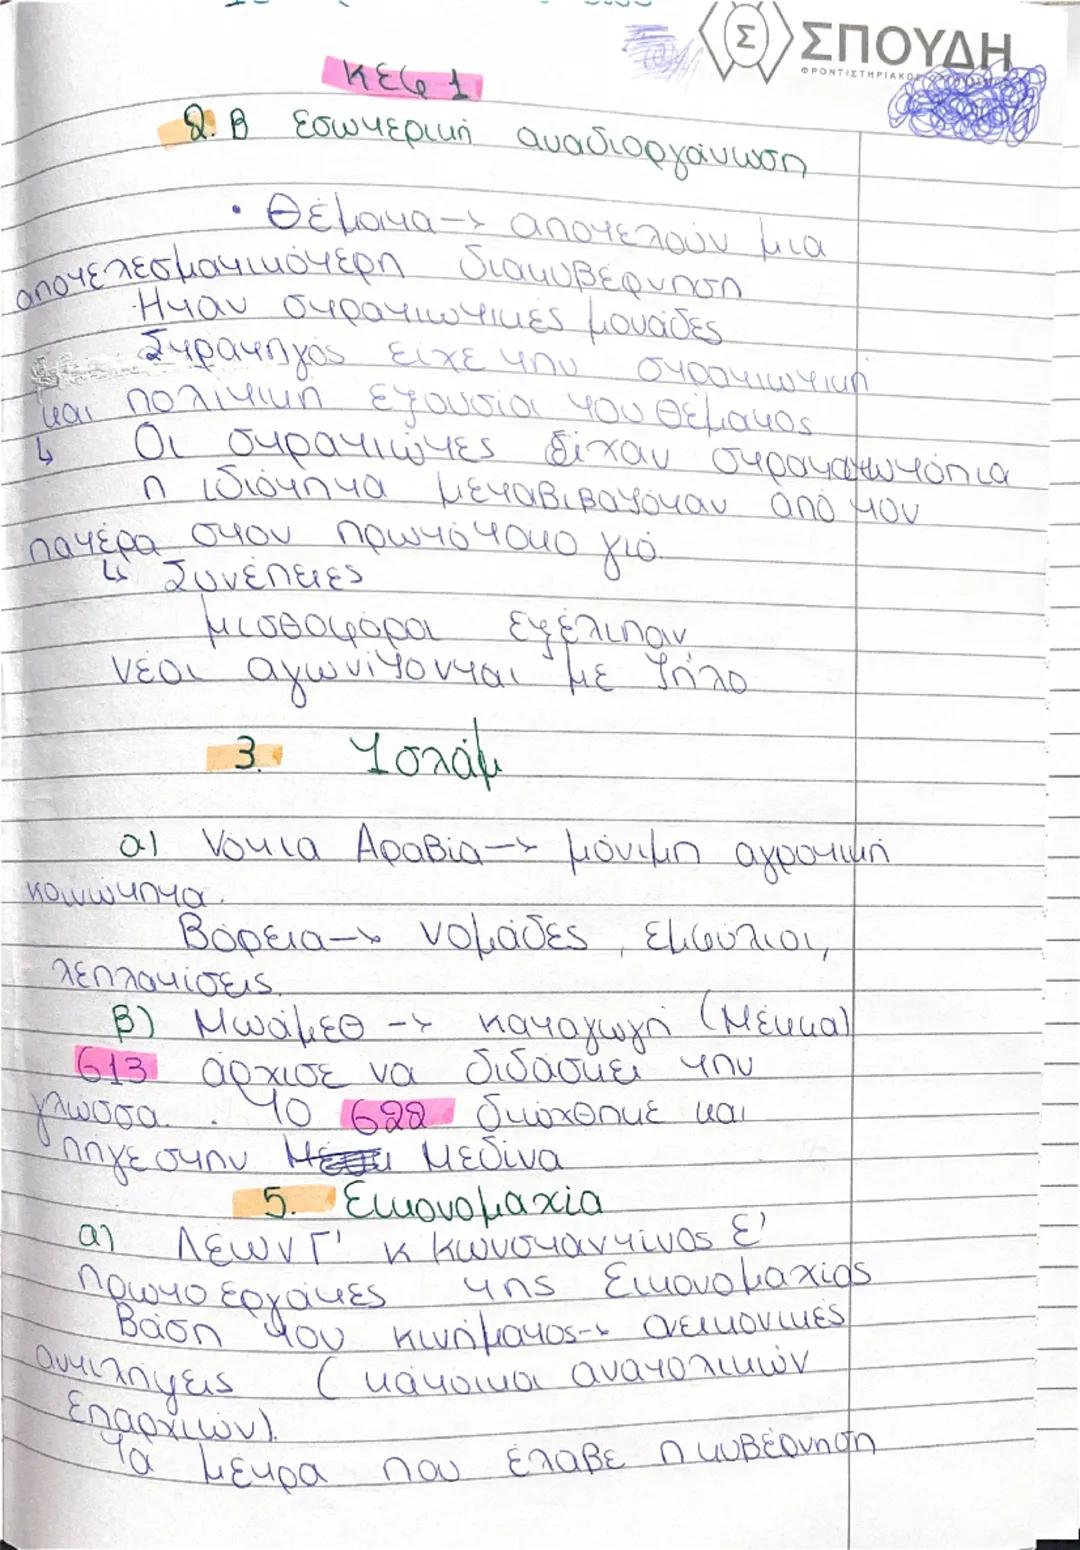 ΣΠΟΥΔΗ
ΦΡΟΝΤΙΣΤΗΡΙΑΚΟΣ
ΚΕΦ 1
2. Β Εσωτερική αναδιοργάνωση
• Θέματα → αποτελούν μια
αποτελεσματικότερη διακυβέρνηση
Ηταν στρατιωτικές μονάδες
Στρατηγός είχε την στρατιωτική
και πολιτική εξουσία του θέματος
↳ Οι στρατιώτες είχαν στρατιωτόπια
η ιδιότητα μεταβιβαζόταν από τον
πατέρα στον πρωτότοκο γιό.
↳ Συνέπειες
μισθοφόροι εξέλιπαν
νέοι αγωνίζονται με ζήλο
3. Ισλάμ
α) Νότια Αραβία → μόνιμη αγροτική
κοινώτητα.
Βόρεια → νομάδες, εμφύλιοι,
λεηλατίσεις.
β) Μωάμεθ → καταγωγή (Μέκκα)
613 άρχισε να διδάσκει την
γλώσσα. Το 622 διώχθηκε και
πήγε στην Μεδίνα
5. Εικονομαχία
α) Λέων Γ' κ Κωνσταντίνος Ε'
πρωτοεργάτες της Εικονομαχίας
Βάση του κινήματος → ανεικονικές
αντιλήψεις (κάτοικοι ανατολικών
επαρχιών).
Τα μέτρα που έλαβε η κυβέρνηση